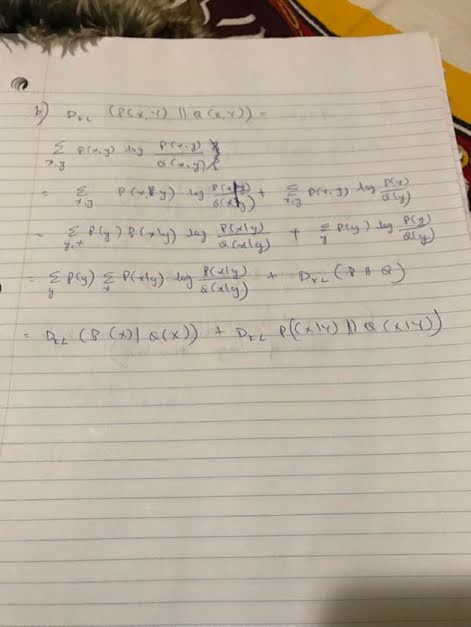 b) D_KL (P(X,Y) || Q(X,Y)) =
Σ_{x,y} P(x,y) log P(x,y)/Q(x,y)
= Σ_{x,y} P(x,y) log P(x|y)/Q(x|y) + Σ_{x,y} P(x,y) log P(y)/Q(y)
= Σ_{y,x} P(y) P(x|y) log P(x|y)/Q(x|y) + Σ_y P(y) log P(y)/Q(y)
= Σ_y P(y) Σ_x P(x|y) log P(x|y)/Q(x|y) + D_KL (P || Q)
= D_KL (P(X)|| Q(X)) + D_KL P((X|Y) || Q(X|Y))